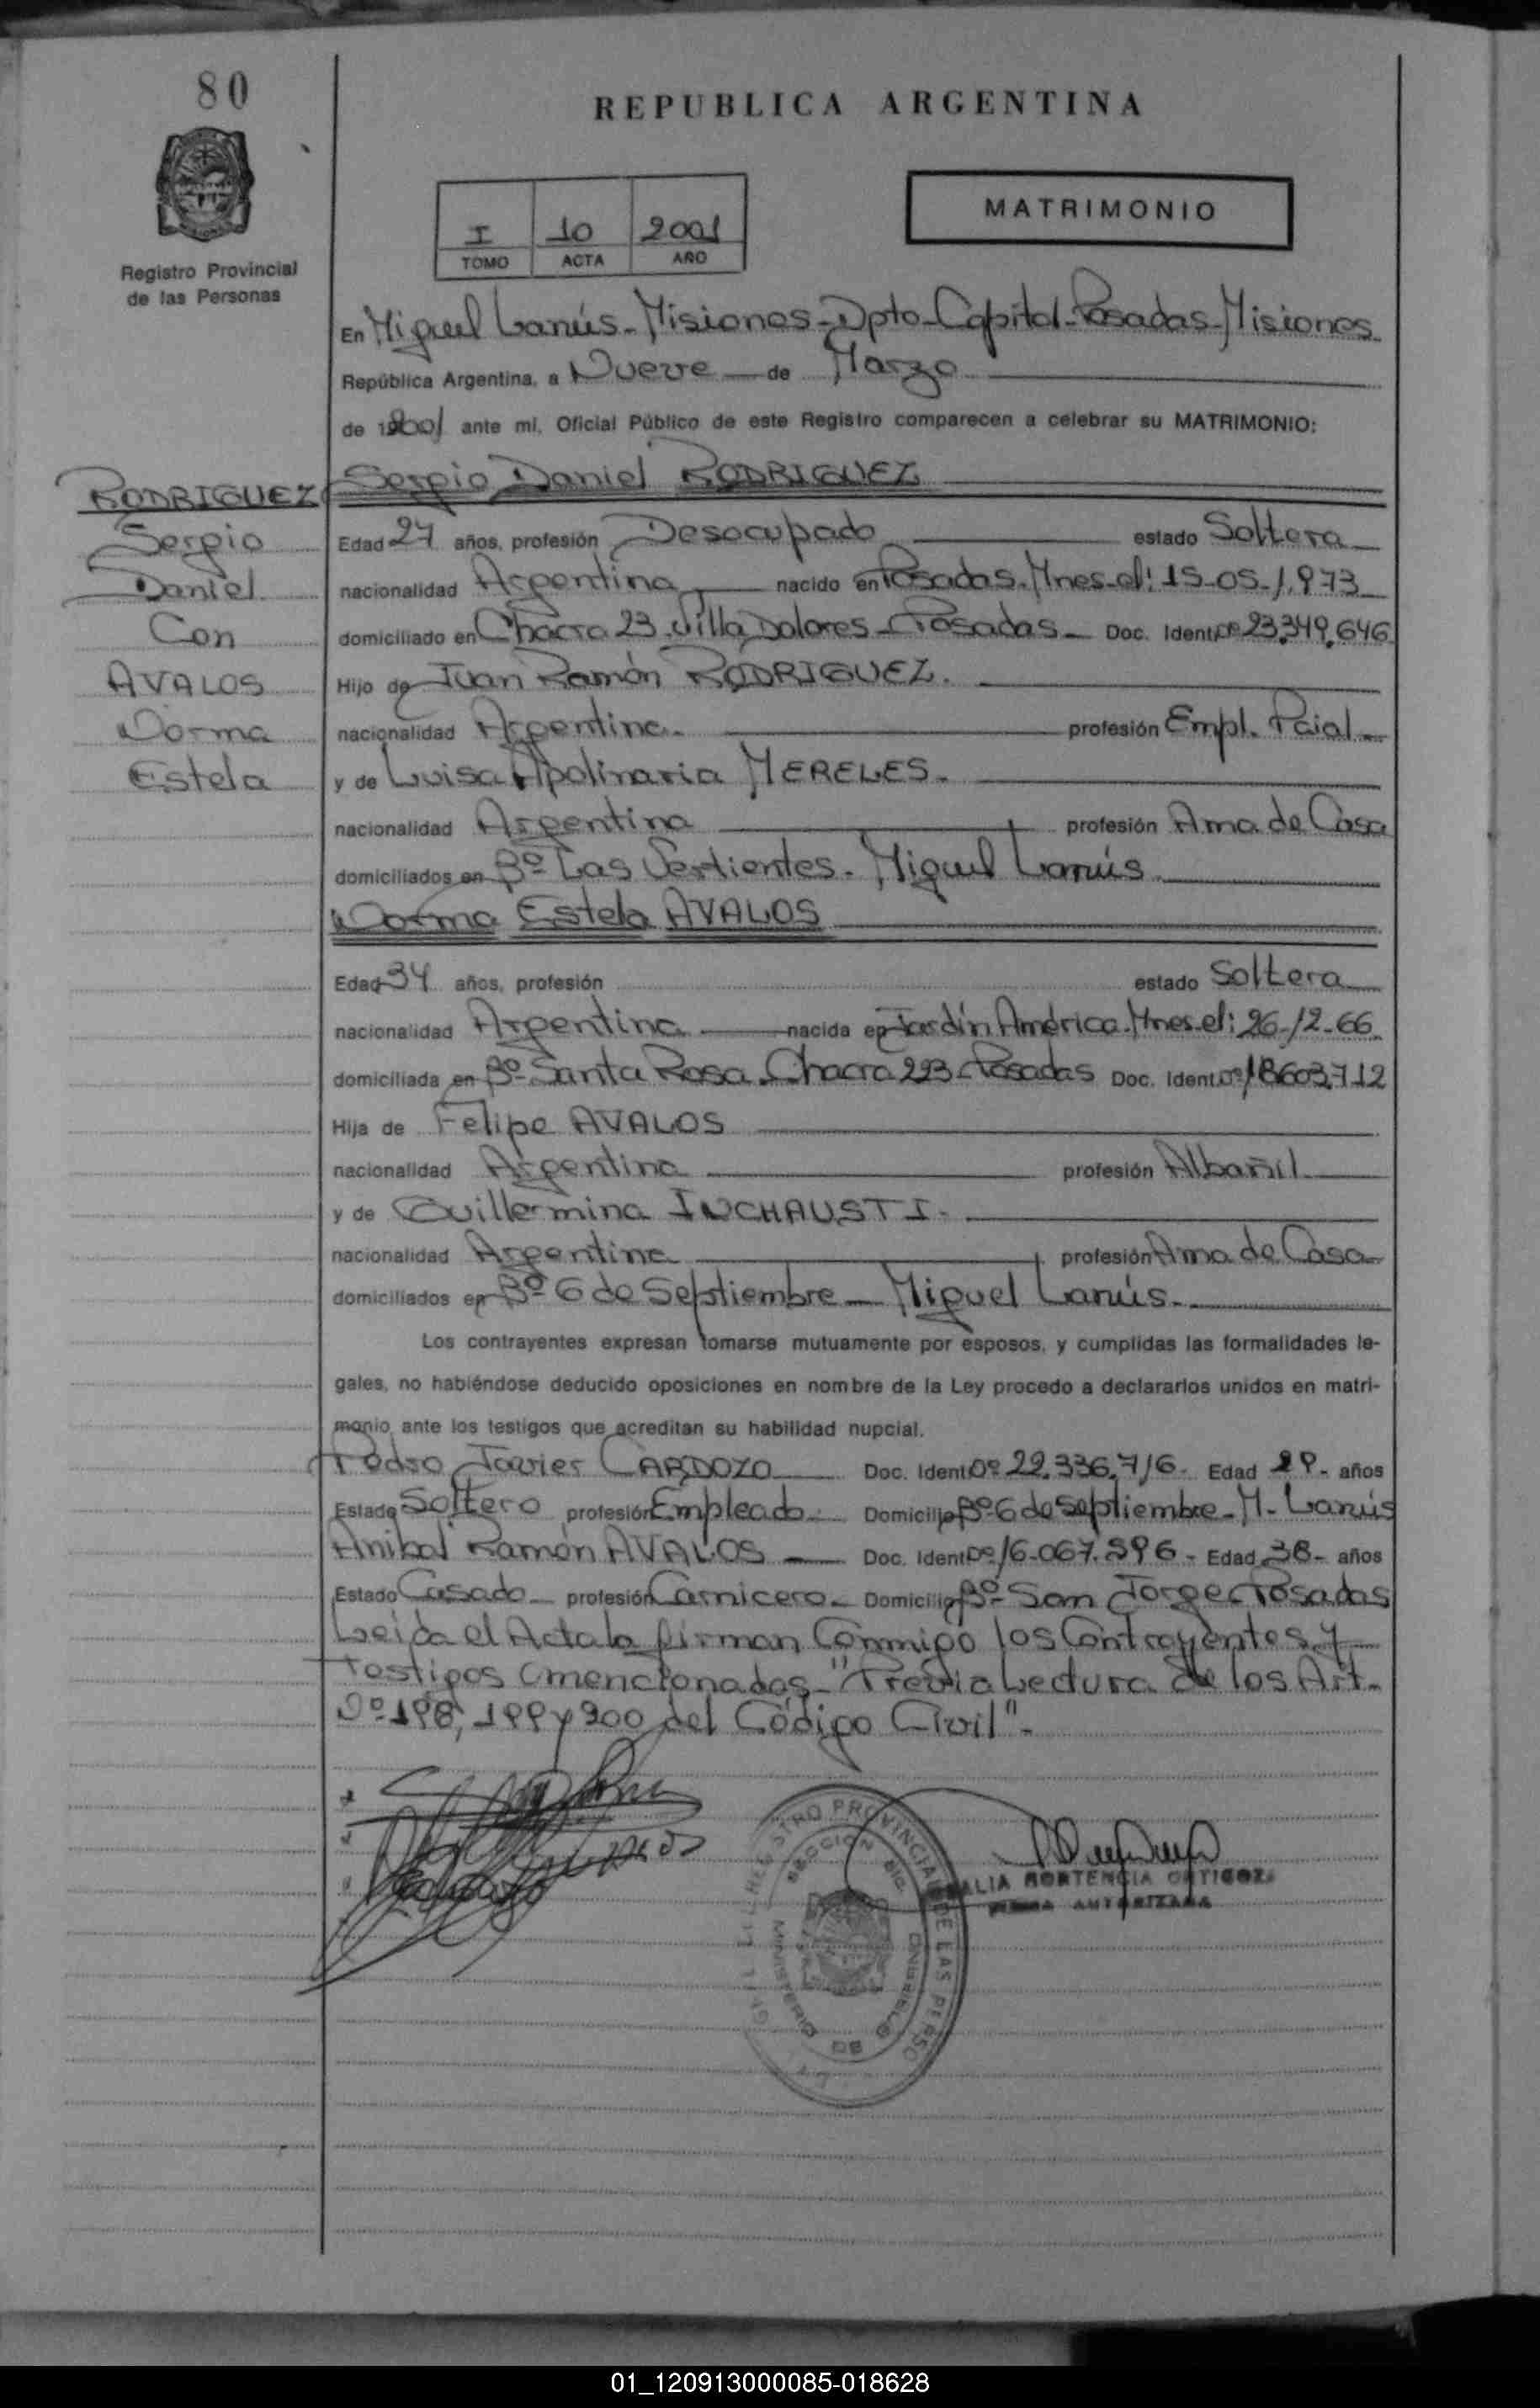 80
REPUBLICA ARGENTINA
MATRIMONIO
I 10 2001
TOMO ACTA AÑO
Registro Provincial
de las Personas
En Miguel Lanús - Misiones - Dpto - Capital - Posadas - Misiones
República Argentina, a Nueve de Marzo
de 2001 ante mi, Oficial Público de este Registro comparecen a celebrar su MATRIMONIO:
Sergio Daniel RODRIGUEZ
RODRIGUEZ
Sergio
Daniel
Con
AVALOS
Norma
Estela
Edad 27 años, profesión Desocupado estado Soltera
nacionalidad Argentina nacido en Posadas. Mnes - el: 15-05-1.973
domiciliado en Chacra 23. Villa Dolores - Posadas - Doc. Ident. Nº 23.349.646
Hijo de Juan Ramón RODRIGUEZ.
nacionalidad Argentina. profesión Empl. Pcial.
y de Luisa Apolinaria MERELES.
nacionalidad Argentina profesión Ama de Casa
domiciliados en Bº Las Vertientes. Miguel Lanús
Norma Estela AVALOS
Edad 34 años, profesión estado Soltera
nacionalidad Argentina nacida en Jardín América. Mnes - el: 26-12-66
domiciliada en Bº Santa Rosa. Chacra 223 - Posadas Doc. Ident. Nº 18.603.712
Hija de Felipe AVALOS
nacionalidad Argentina profesión Albañil
y de Guillermina INCHAUSTI.
nacionalidad Argentina profesión Ama de Casa
domiciliados en Bº 6 de Septiembre - Miguel Lanús.
Los contrayentes expresan tomarse mutuamente por esposos, y cumplidas las formalidades le-
gales, no habiéndose deducido oposiciones en nombre de la Ley procedo a declararlos unidos en matri-
monio ante los testigos que acreditan su habilidad nupcial.
Pedro Javier CARDOZO Doc. Ident. Nº 22.336.716 - Edad 29 - años
Estado Soltero profesión Empleado. Domicilio Bº 6 de Septiembre - M. Lanús
Anibal Ramón AVALOS Doc. Ident. Nº 16.067.596 - Edad 38 - años
Estado Casado profesión Carnicero - Domicilio Bº San Jorge Posadas
Leida el Acta la firman Conmigo los Contrayentes y
Testigos mencionados - "Previa Lectura de los Art.
Nº 198, 199 y 200 del Código Civil".
REGISTRO PROVINCIAL DE LAS PERSO
MINISTERIO DE GOBIERNO
HORTENCIA
FIRMA AUTORIZADA
01_120913000085-018628